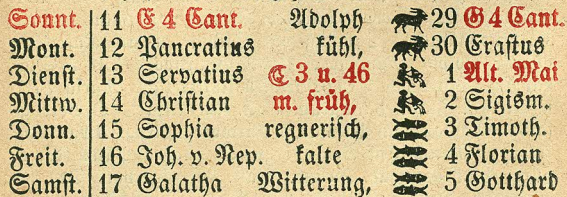 Sonnt. 11 E 4 Cant. Adolph 29 G 4 Cant.
Mont. 12 Pancratius kühl, 30 Erastus
Dienst. 13 Servatius ☾ 3 u. 46 1 Alt. Mai
Mittw. 14 Christian m. früh, 2 Sigism.
Donn. 15 Sophia regnerisch, 3 Timoth.
Freit. 16 Joh. v. Nep. kalte 4 Florian
Samst. 17 Galatha Witterung, 5 Gotthard